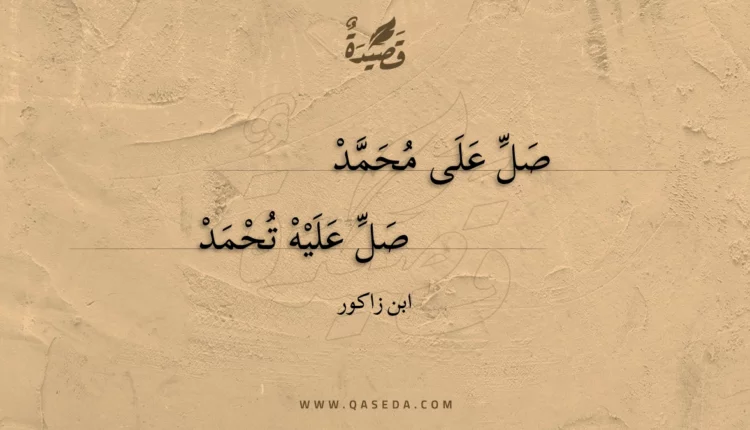 قَصِيدَةٌ
صَلِّ عَلَى مُحَمَّدْ
صَلِّ عَلَيْهْ تُحْمَدْ
ابن زاكور
WWW.QASEDA.COM